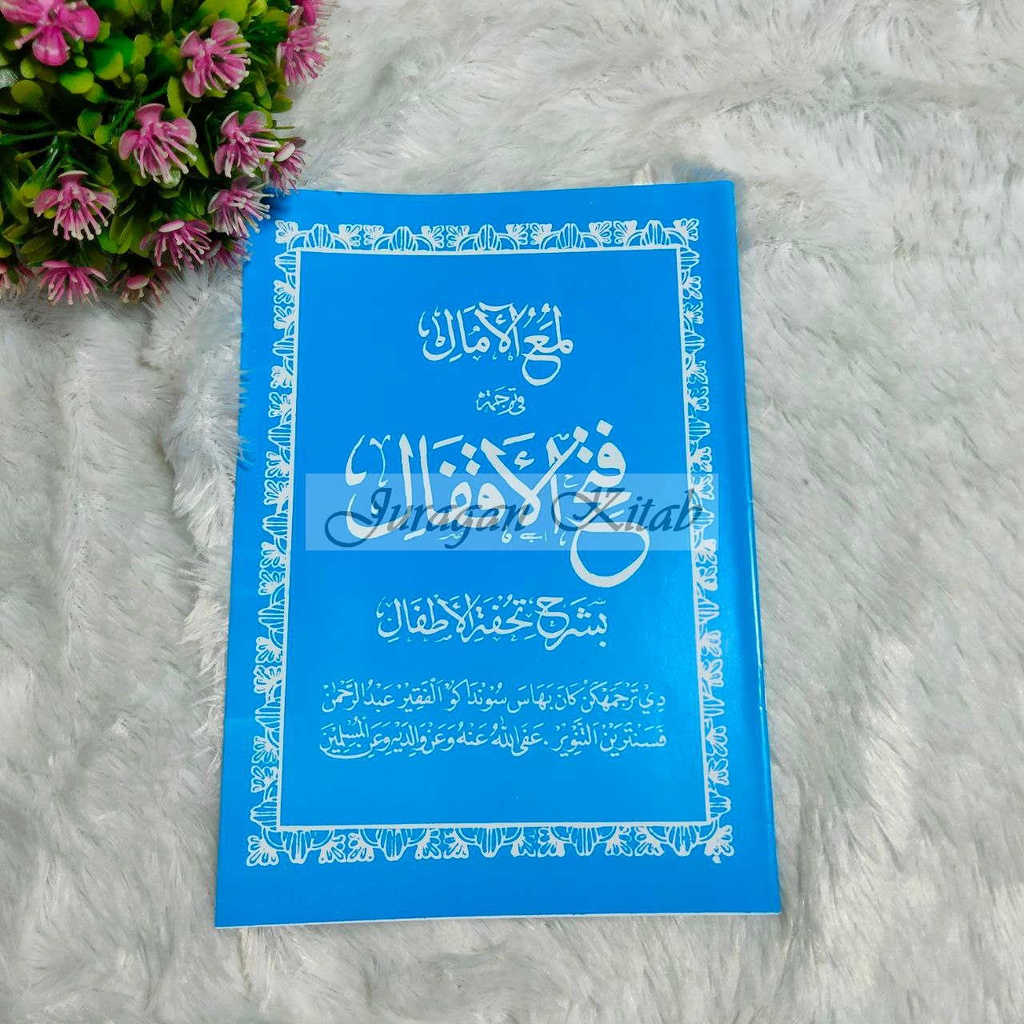 لمع الآمال
في ترجمة
فتح الأقفال
Juragan Kitab
بشرح تحفة الأطفال
دي ترجمهكن كان بهاس سوندا كو الفقير عبد الرحمن
فسنترين التنوير . عفى الله عنه وعن والديه وعن المسلمين